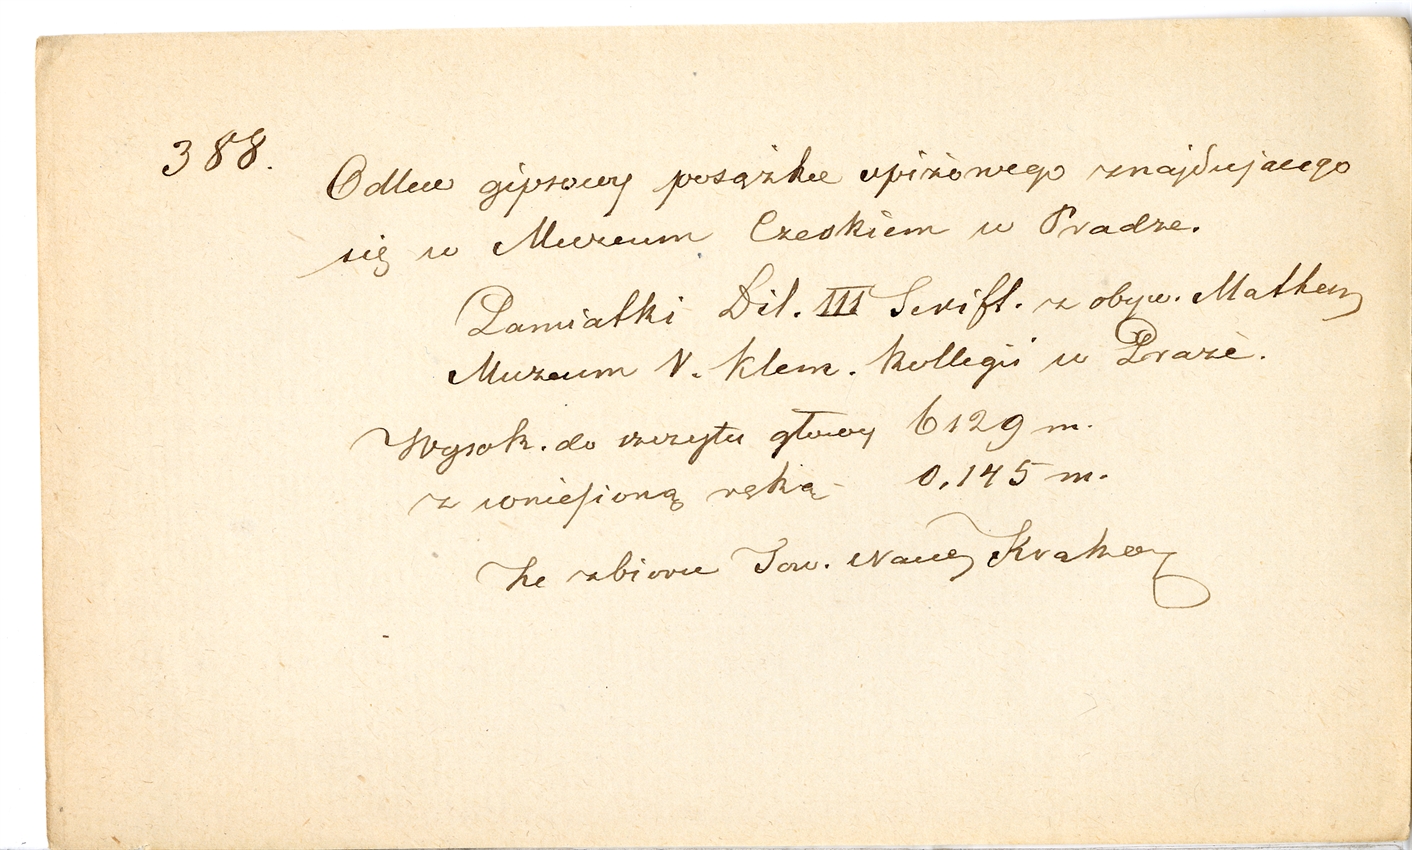 388.
Odlew gipsowy posążka spiżowego znajdującego
się w Muzeum Czeskiem w Pradze.
Pamiatki Dil. III Serift. z obyw.
Muzeum V. Klem. Kollegii w Praze.
Wysok. do szczytu głowy 0129 m.
z wniesioną ręką 0.145 m.
Ze zbioru Tow. Nauk Krakow